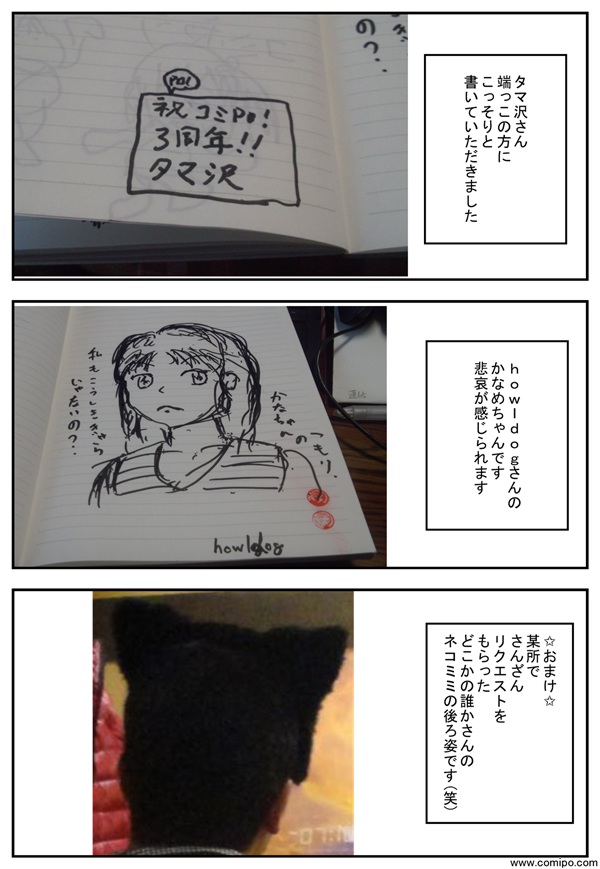 タマ沢さん
端っこの方に
こっそりと
書いていただきました
の?
PO!
祝コミPO!
3周年!!
タマ沢
howldogさんの
かなめちゃんです
悲哀が感じられます
かなちゃんの
つもり.
私もこうしききゃら
じゃないの?
howldog
☆おまけ☆
某所で
さんざん
リクエストを
もらった
どこかの誰かさんの
ネコミミの後ろ姿です(笑)
www.comipo.com